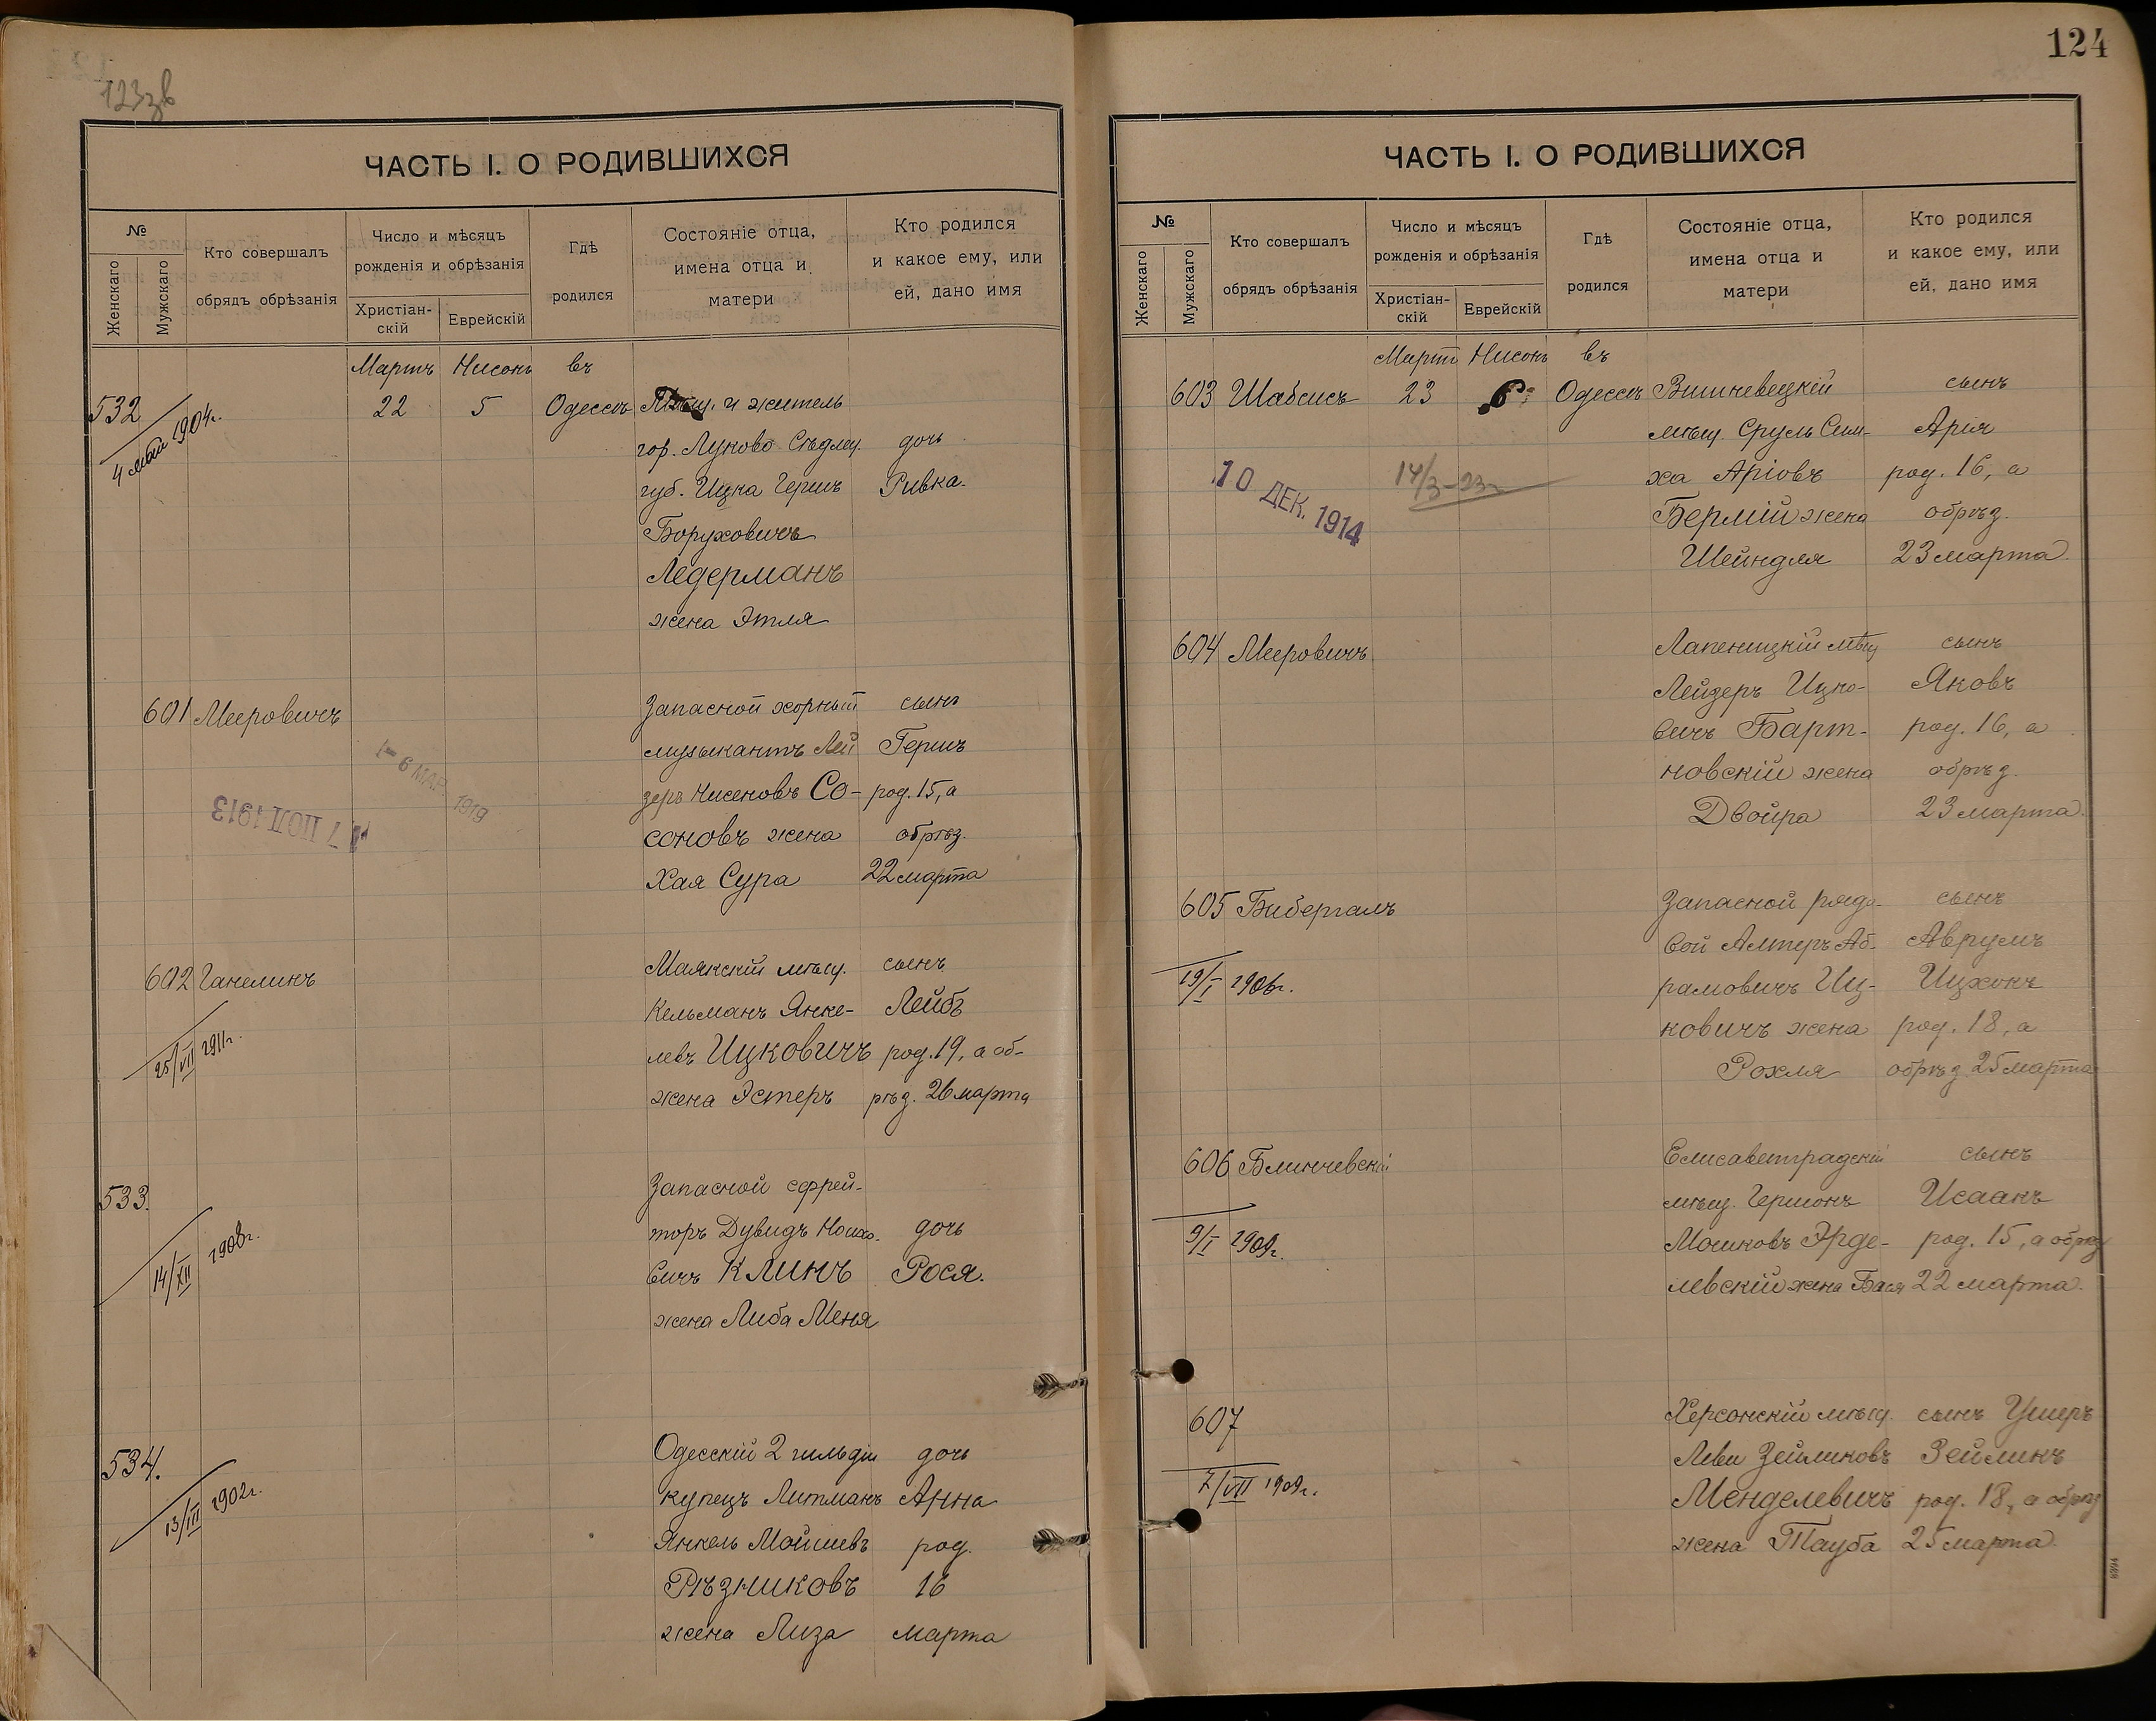 123зв
ЧАСТЬ I. О РОДИВШИХСЯ
№
Женскаго
Мужскаго
Кто совершалъ
обрядъ обрѣзанія
Число и мѣсяцъ
рожденія и обрѣзанія
Христіан-
скій
Еврейскій
Гдѣ
родился
Состояніе отца,
имена отца и
матери
Кто родился
и какое ему, или
ей, дано имя
Мартъ Нисонъ въ
532 22 5 Одессѣ и житель
4 мая 1904г.
гор. Луково Сѣдлец. дочь
губ. Ицка Гершъ Ривка.
Боруховичъ
Ледерманъ
жена Этля
601 Мееровичъ Запасной хорный сынъ
музыкантъ Лей Гершъ
зеръ Нисеновъ Со- род. 15, а
соновъ жена обрѣз.
Хая Сура 22 марта
6 МАР 1919
17 ІЮЛ 1913
602 Ганелинъ Маякскій мѣщ. сынъ
Кельманъ Янке- Лейбъ
левъ Ицковичъ род. 19, а об-
жена Эстеръ рѣз. 26 марта
25/VII 1911г.
533. Запасной ефрей-
торъ Дувидъ дочь
вичъ Клинъ Рося.
жена Либа Меня
14/XII 1908г.
534. Одесскій 2 гильдіи дочь
купецъ Литманъ Анна
Янкель Мойшевъ род.
Рѣзниковъ 16
жена Лиза марта
13/III 1902г.
124
ЧАСТЬ I. О РОДИВШИХСЯ
№
Женскаго
Мужскаго
Кто совершалъ
обрядъ обрѣзанія
Число и мѣсяцъ
рожденія и обрѣзанія
Христіан-
скій
Еврейскій
Гдѣ
родился
Состояніе отца,
имена отца и
матери
Кто родился
и какое ему, или
ей, дано имя
Мартъ Нисонъ въ
603 Шабсисъ 23 6 Одессѣ Вишневецкій сынъ
мѣщ. Сруль Сим- Арія
ха Аріовъ род. 16, а
Берлій жена обрѣз.
Шейндля 23 марта.
10 ДЕК. 1914
14/3-23г
604 Мееровичъ Лапеницкій мѣщ сынъ
Лейзеръ Ицко- Яковъ
вичъ Барт- род. 16, а
новскій жена обрѣз.
Двойра 23 марта.
605 Бибергалъ Запасной рядо- сынъ
вой Алтеръ Аб- Аврумъ
рамовичъ Иц- Ицхокъ
ковичъ жена род. 18, а
Рохля обрѣз. 25 марта
19/I 1906г.
606 Блинчевскій Елисаветградскій сынъ
мѣщ. Гершонъ Исаакъ
Мошковъ Эрде- род. 15, а обрѣз
левскій жена Бася 22 марта.
9/I 1909г.
607 Херсонскій мѣщ. сынъ Ушеръ
Леви Зейликовъ Зейликъ
Менделевичъ род. 18, а обрѣз
жена Тауба 25 марта.
7/VII 1909г.